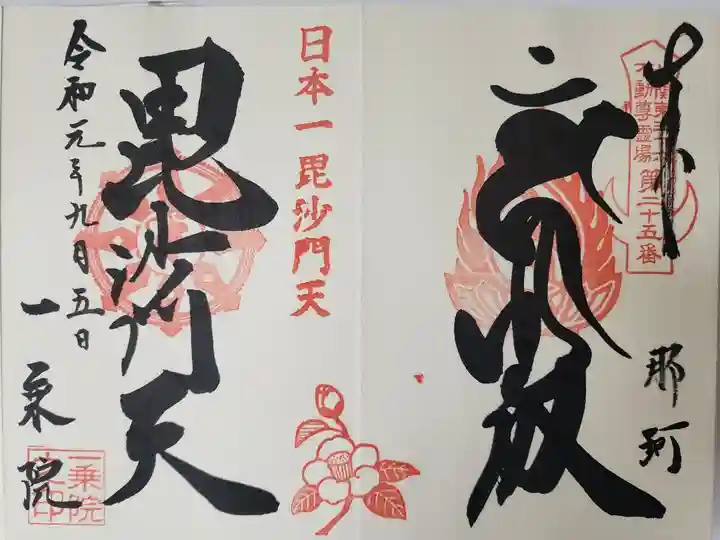 北関東三十六
不動尊霊場
第二十五番
那珂
日本一毘沙門天
毘沙門天
令和元年九月五日
一乗院
一乗院
之印